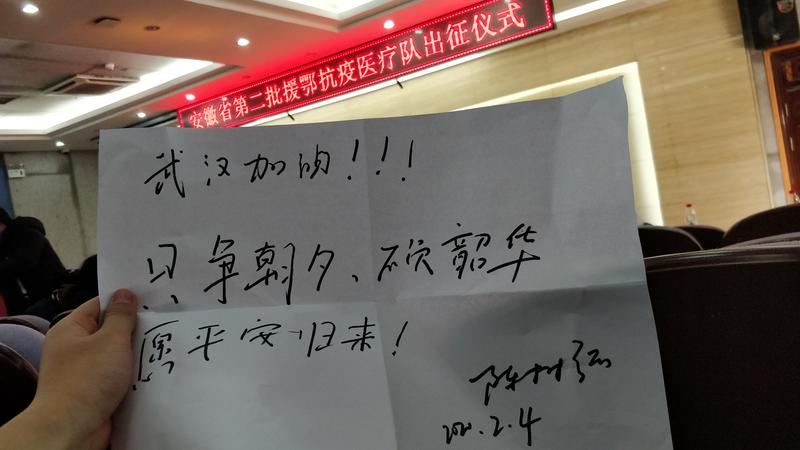 安徽省第二批援鄂抗疫医疗队出征仪式
武汉加油!!!
只争朝夕、不负韶华
愿平安归来!
陈树弘
2020.2.4